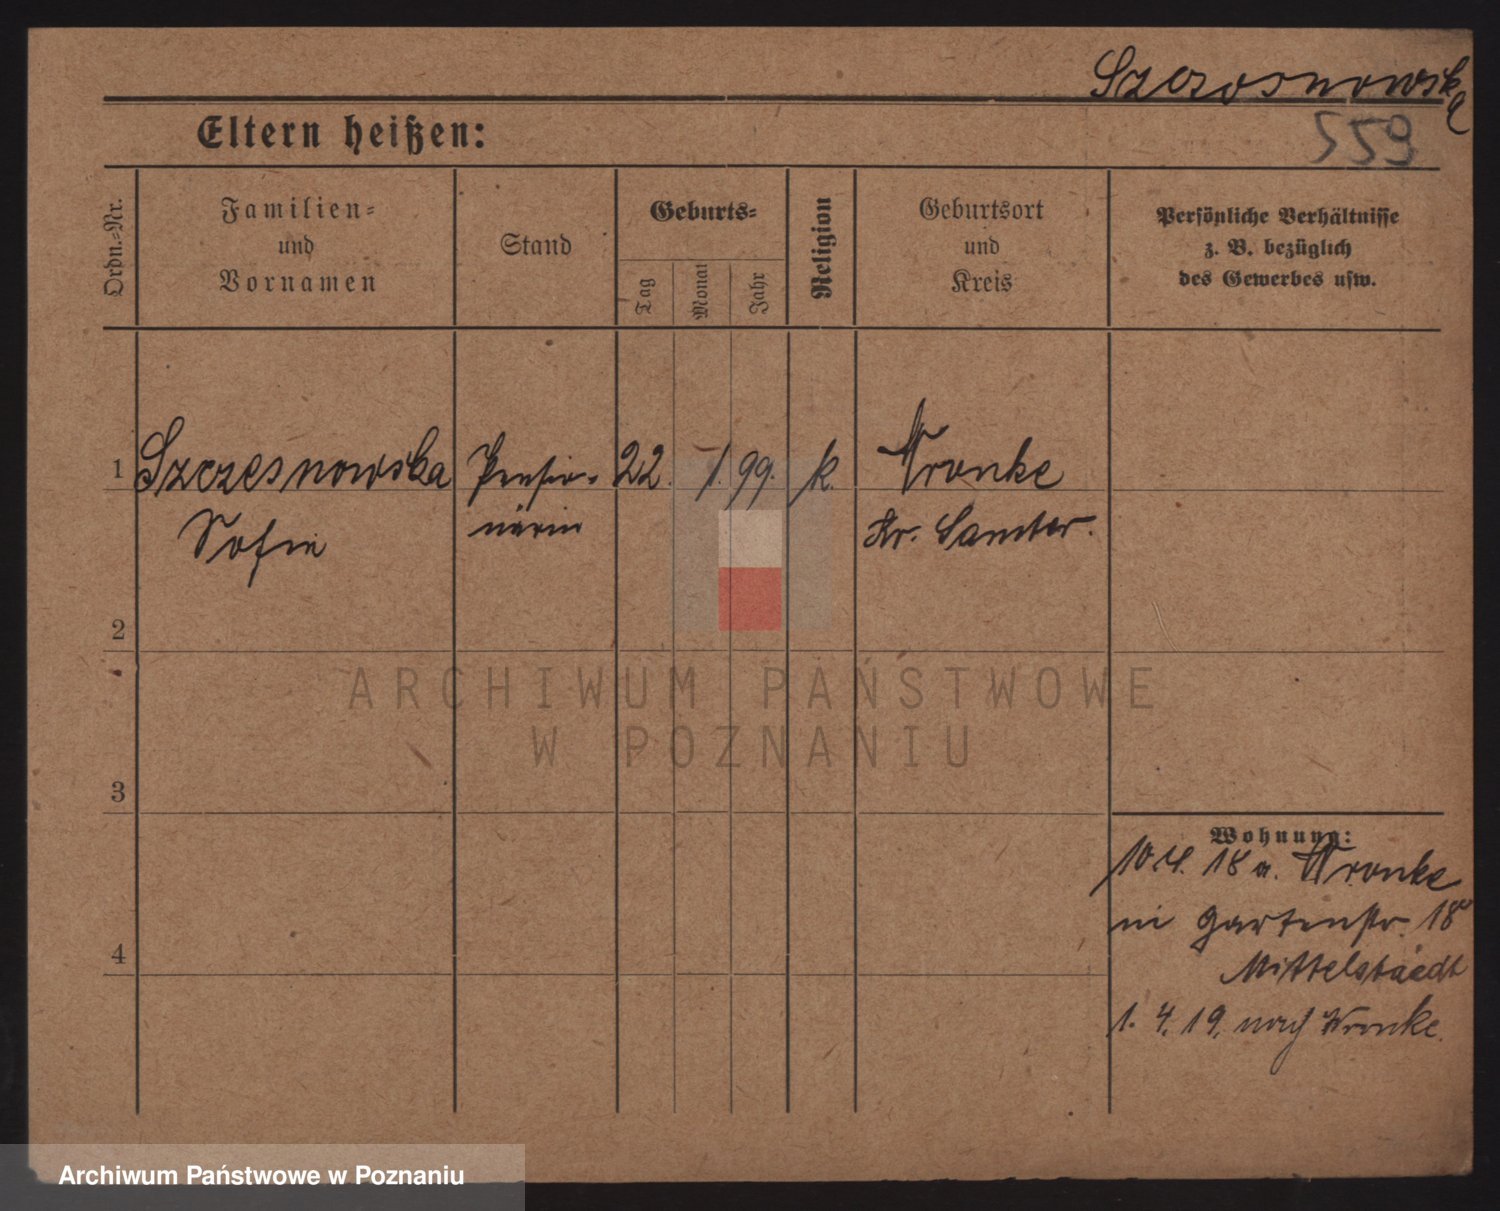 Szczesnowska
559
Eltern heißen:
Ordn.-Nr.
Familien-
und
Vornamen
Stand
Geburts-
Tag
Monat
Jahr
Religion
Geburtsort
und
Kreis
Persönliche Verhältnisse
z. B. bezüglich
des Gewerbes usw.
1 Szczesnowska Pensio- 22. 1. 99. k. Wronke
Sofie närin Kr. Samter.
2
3
4
Wohnung:
10.4. 18 a. Wronke
in Gartenstr. 18
Mittelstaedt
1. 4. 19. nach Wronke.
ARCHIWUM PAŃSTWOWE
W POZNANIU
Archiwum Państwowe w Poznaniu